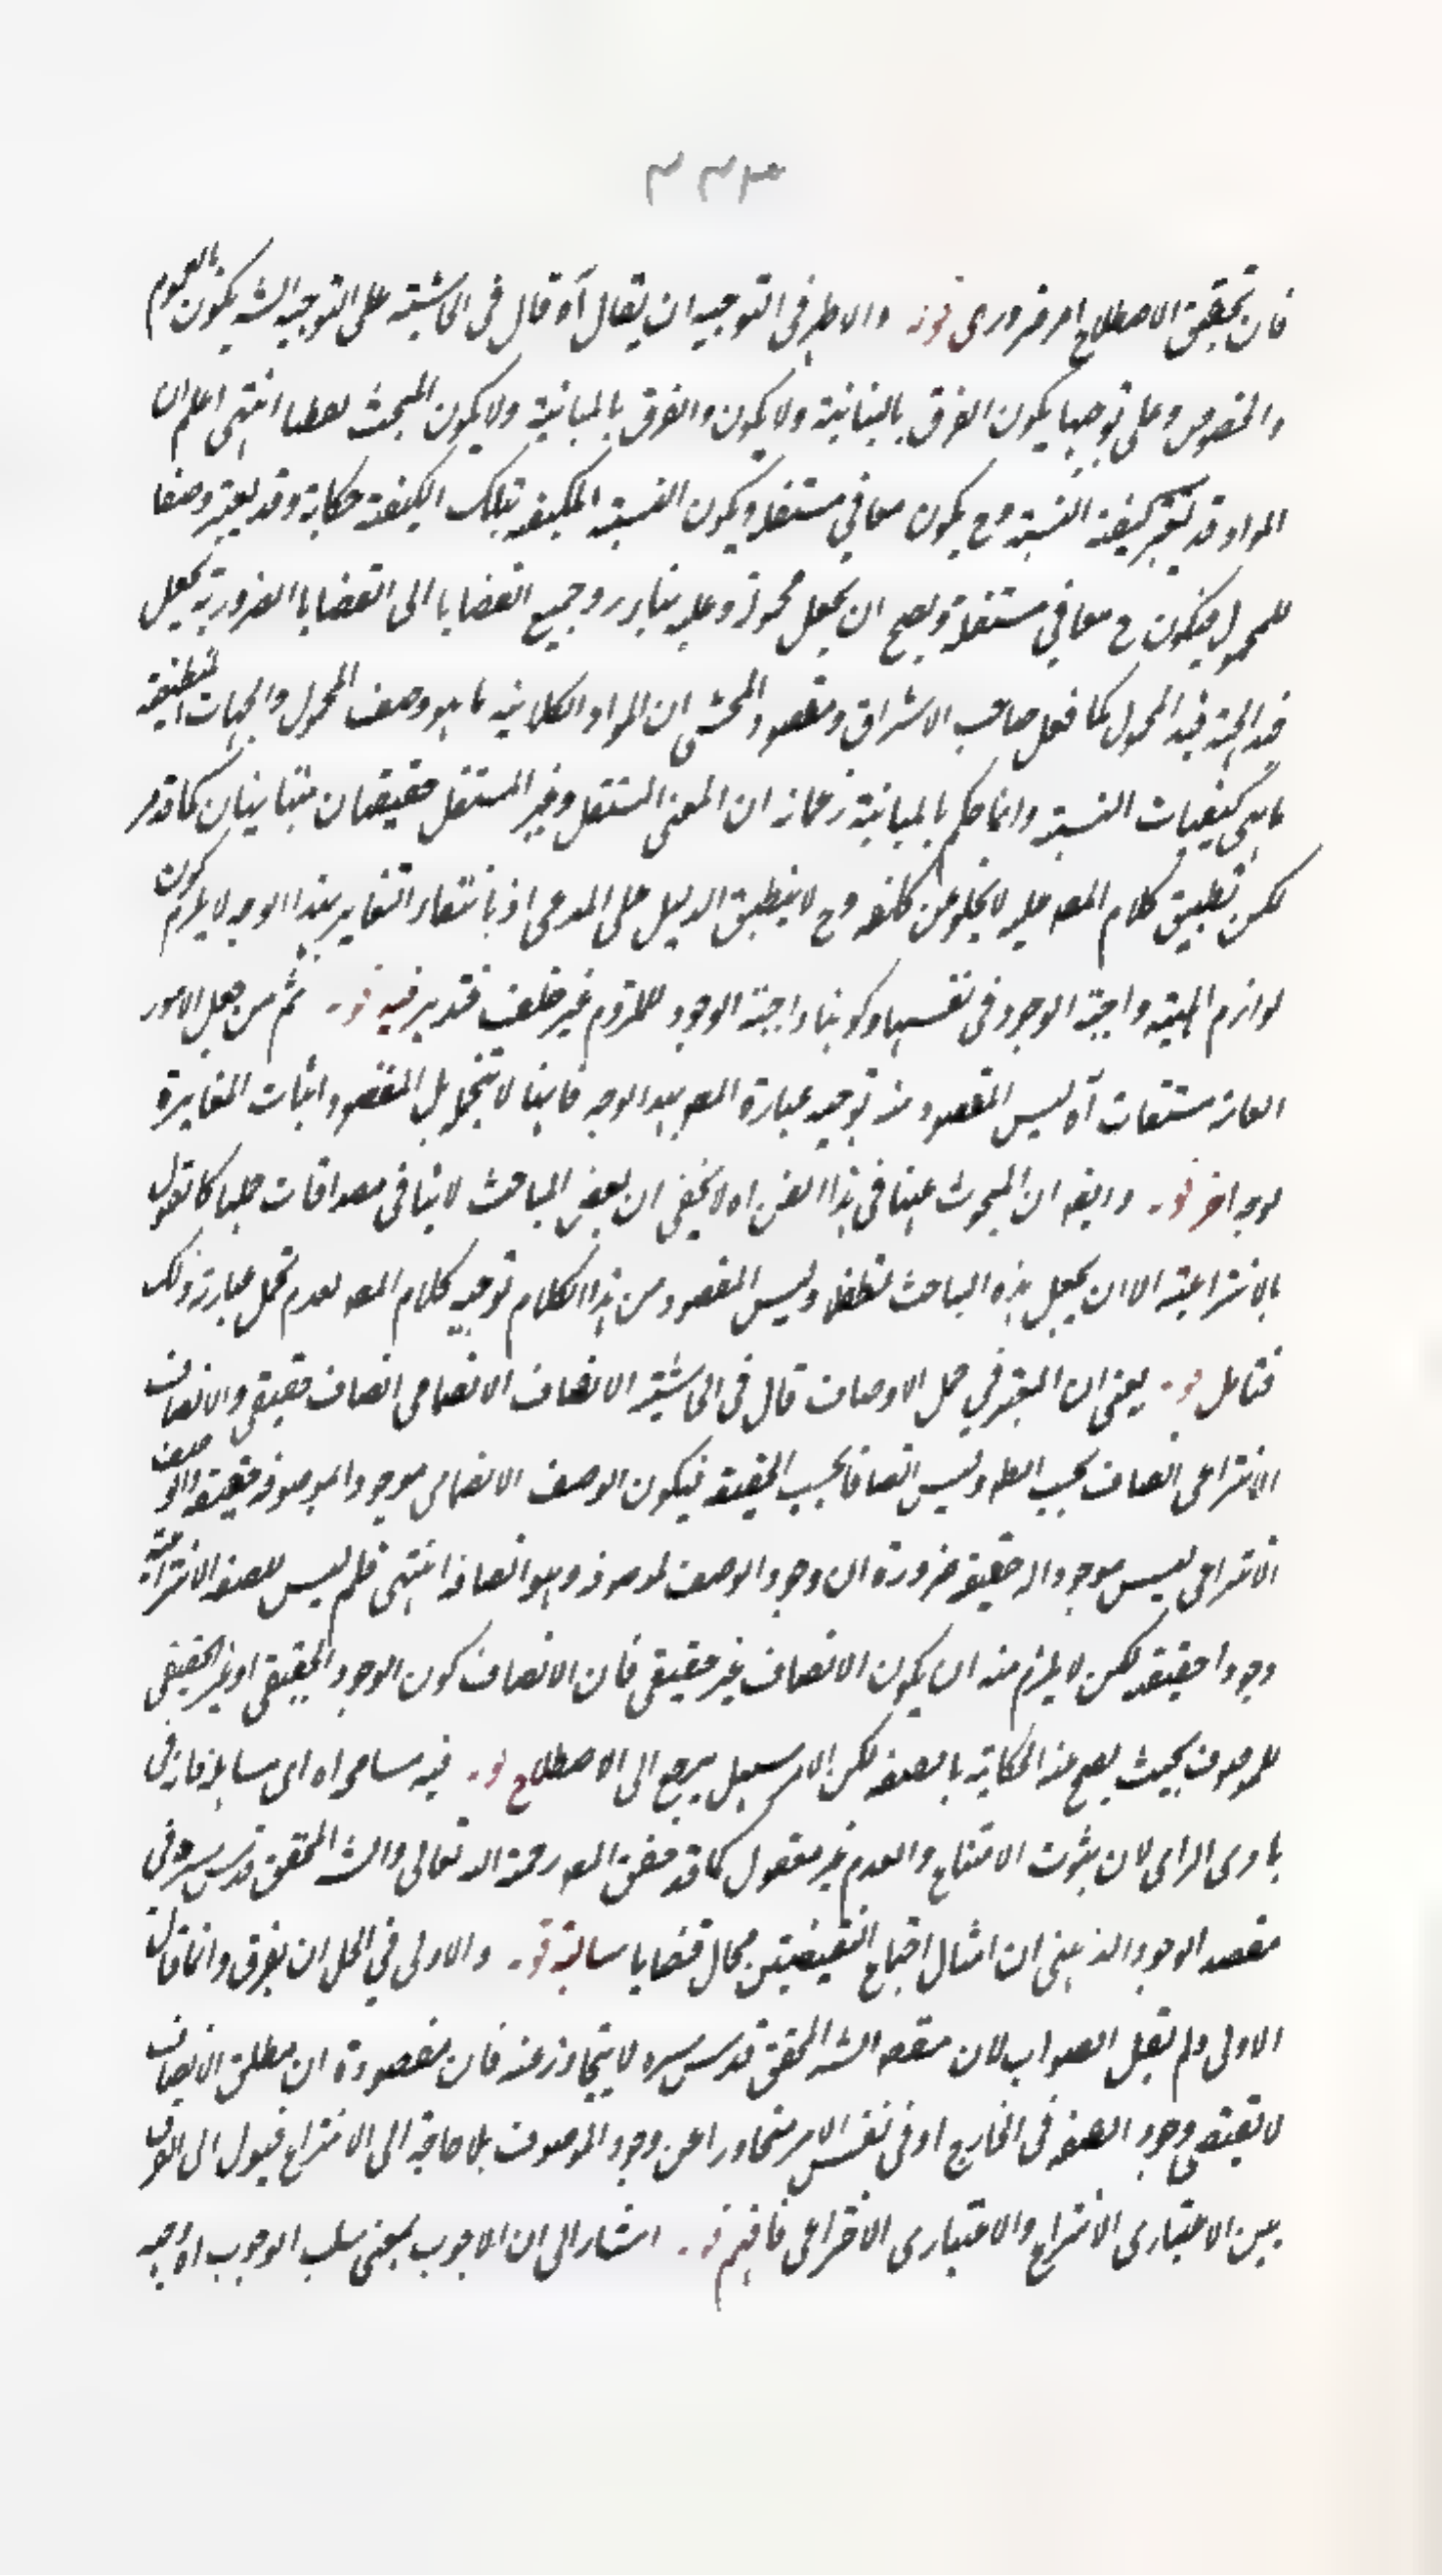 فان تحقيق الاصطلاح امر ضرورى قوله والاظهر فى التوجيه ان يقال آه قال فى الحاشية على التوجيه الشه يكون بالعموم
والخصوص وعلى توجيهنا يكون الفرق بالمباينة ولا يكون والفرق بالمباينة ولا يكون المبحث لفظيا انتهى اعلم ان
المواد قد يعتبر كيفية النسبة وح يكون معانى مستقلة ويكون النسبة المكيفة بتلك الكيفية حكاية وقد يعتبر وصفا
للمحمول فيكون ح معانى مستقلة ويصح ان يجعل محمولة وعليه بناء رجوع جميع القضايا الى القضايا الضرورية بجعل
قيد الجهة قيد المحمول كما فعل صاحب الاشراق ومقصود المحشى ان المواد الكلامية ما هو وصف المحمول والجهات المنطقية
ما هى كيفيات النسبة وانما حكم بالمباينة زعما منه ان المعنى المستقل وغير المستقل حقيقتان متباينتان كما قد مر
لكن تطبيق كلام المصه عليه لا يخلو عن كلفة وح لا ينطبق الدليل على المدعى اذ بانتفاء التغاير بهذا الوجه لا يلزم كون
لوازم المهية واجبة الوجود فى نفسها وكونها واجبة الوجود للملزوم غير خلف فتدبر فيه قوله ثم من جعل الامور
العامة مشتقات آه ليس المقصود منه توجيه عبارة المصه بهذا الوجه فانها لا تتحمل بل المقصود اثبات المغايرة
بوجه اخر قوله وايضا ان المبحوث عنها فى هذا الفن اه لا يخفى ان بعض المباحث لا يتأتى فى مصداقات حملها كالقول
بالانتزاعية الا ان يجعل هذه المباحث لفظية وليس المقصود من هذا الكلام توجيه كلام المصه لعدم تحمل عبارته ذلك
فتأمل قوله يعنى ان المعتبر فى حمل الاوصاف قال فى الحاشية الاتصاف الانضمامى اتصاف حقيقى والاتصاف
الانتزاعى اتصاف بحسب الظه وليس اتصافا بحسب الحقيقة فيكون الوصف الانضمامى موجودا لموصوفه حقيقة والوصف
الانتزاعى ليس موجودا له حقيقة ضرورة ان وجود الوصف لموصوفه وهو اتصافه انتهى فلم ليس للصفة الانتزاعية
وجودا حقيقة لكن لا يلزم منه ان يكون الاتصاف غير حقيقى فان الاتصاف كون الوجود الحقيقى او غير الحقيقى
للموصوف بحيث يصح عنه الحكاية بالصفة لكن الامر سهل يرجع الى الاصطلاح قوله فيه مسامحة اه اى مساهلة فانه فى
بادى الراى لان ثبوت الامتناع والعدم غير معقول كما قد حقق المصه رحمة الله تعالى والشه المحقق قدس سره فى
مقصد الوجود الذهنى ان امثال اجتماع النقيضين محال قضايا سالبة قوله والاولى فى الحل ان يفرق وانما قال
الاولى ولم يقل الصواب لان مقصد الشه المحقق قدس سره لا يتجاوز عنه فان مقصوده ان مطلق الاتصاف
لا يقتضى وجود الصفة فى الخارج او فى نفس الامر متجاوزا عن وجود الموصوف بلا حاجة الى الانتزاع فيؤل الى الفرق
بين الاعتبارى الانتزاع والاعتبارى الاختراعى فافهم قوله اشار الى ان الاجوب بمعنى سلب الوجوب اه وجه